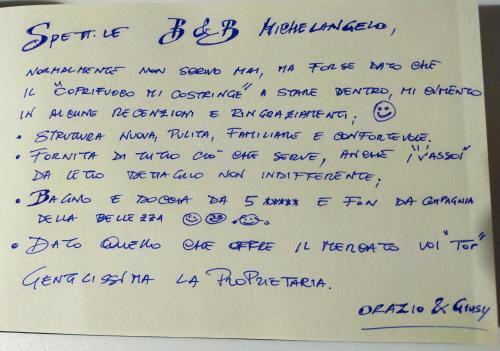 SPETT.LE B & B MICHELANGELO,
NORMALMENTE NON SCRIVO MAI, MA FORSE DATO CHE
IL "COPRIFUOCO MI COSTRINGE" A STARE DENTRO, MI CIMENTO
IN ALCUNE RECENZIONI E RINGRAZIAMENTI; ☺
• STRUTURA NUOVA, PULITA, FAMILIARE E CONFORTEVOLE.
• FORNITA DI TUTTO CIO' CHE SERVE, ANCHE I "VASSOI"
DA LETTO DETTAGLIO NON INDIFFERENTE;
• BAGNO E DOCCIA DA 5 ***** E FON DA COMPAGNIA
DELLA BELLEZZA ☺☺☺
• DATO QUELLO CHE OFFRE IL MERCATO VOI "TOP"
GENTILISSIMA LA PROPRIETARIA.
ORAZIO & GIUSY